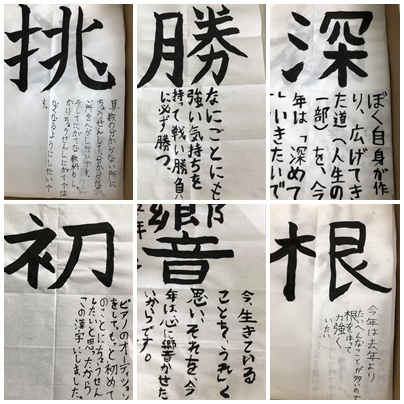 挑
勝
なにごとにも
強い気持ちを
持って戦い勝負
に必ず勝つ。
深
ぼく自身が作
り、広げてき
た道(人生の
一部)を、今
年は「深めて
いきたいで
初
ピアノのオーディション
をしてもっと初めて
のことにちょうせん
したいと思ったから
この漢字にしました。
響
今、生きている
ことを、うれしく
思い、それを、今
年は心に響かせた
いからです。
根
今年は去年より
たいへんなことが多いので
根をはって
力強く
いたい